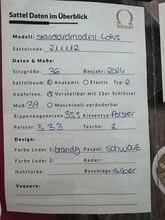 Sattel Daten im Überblick
Modell: Standardmodell Lotus
Sattelcode: 211112
Daten & Maße:
Sitzgröße: 36 Baujahr: 2024
Sattelbaum: Anatomic Elastic
Kopfeisen: Verstellbar mit 12er Schlüssel
Maß: 39 Maschinell veränderbar
Rippenbogeneisen: 35,5 Kissentyp:
Polster: 3 3 3 Tasche: 2
Design:
Farbe Leder 1: brandy Kespel: schwarz
Farbe Leder 2: Keder:
Nahtfarbe: Beschläge: silber
Vaquero: